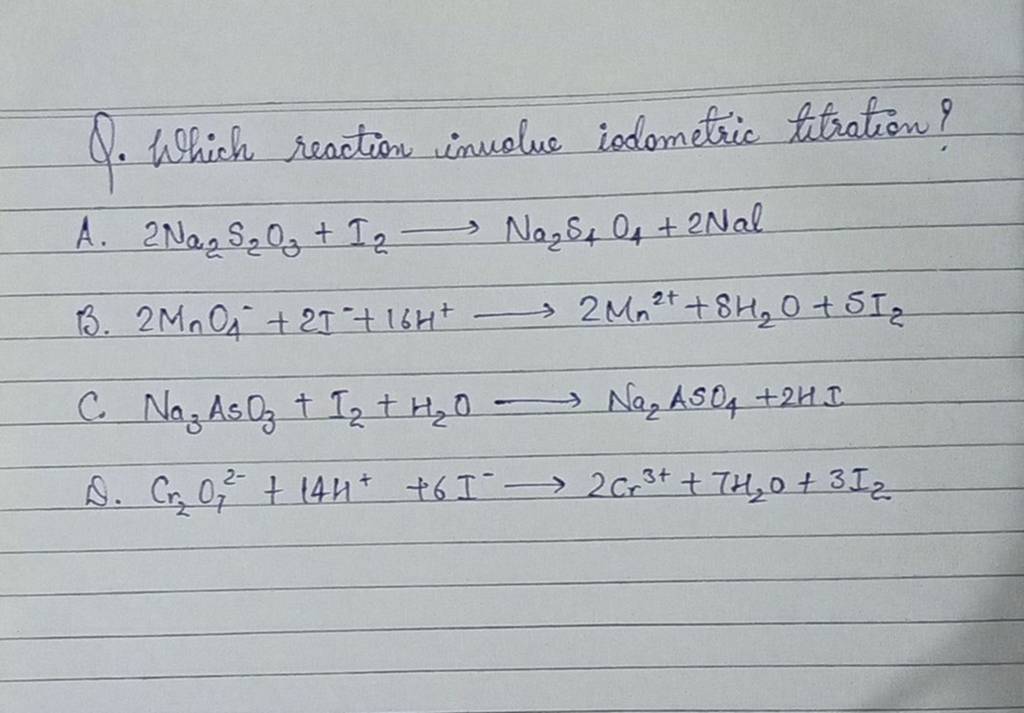 Q. Which reaction involve iodometric titration?
A. 2Na₂S₂O₃ + I₂ → Na₂S₄O₄ + 2NaI
B. 2MnO₄⁻ + 2I⁻ + 16H⁺ → 2Mn²⁺ + 8H₂O + 5I₂
C. Na₃AsO₃ + I₂ + H₂O → Na₂ASO₄ + 2HI
D. Cr₂O₇²⁻ + 14H⁺ + 6I⁻ → 2Cr³⁺ + 7H₂O + 3I₂